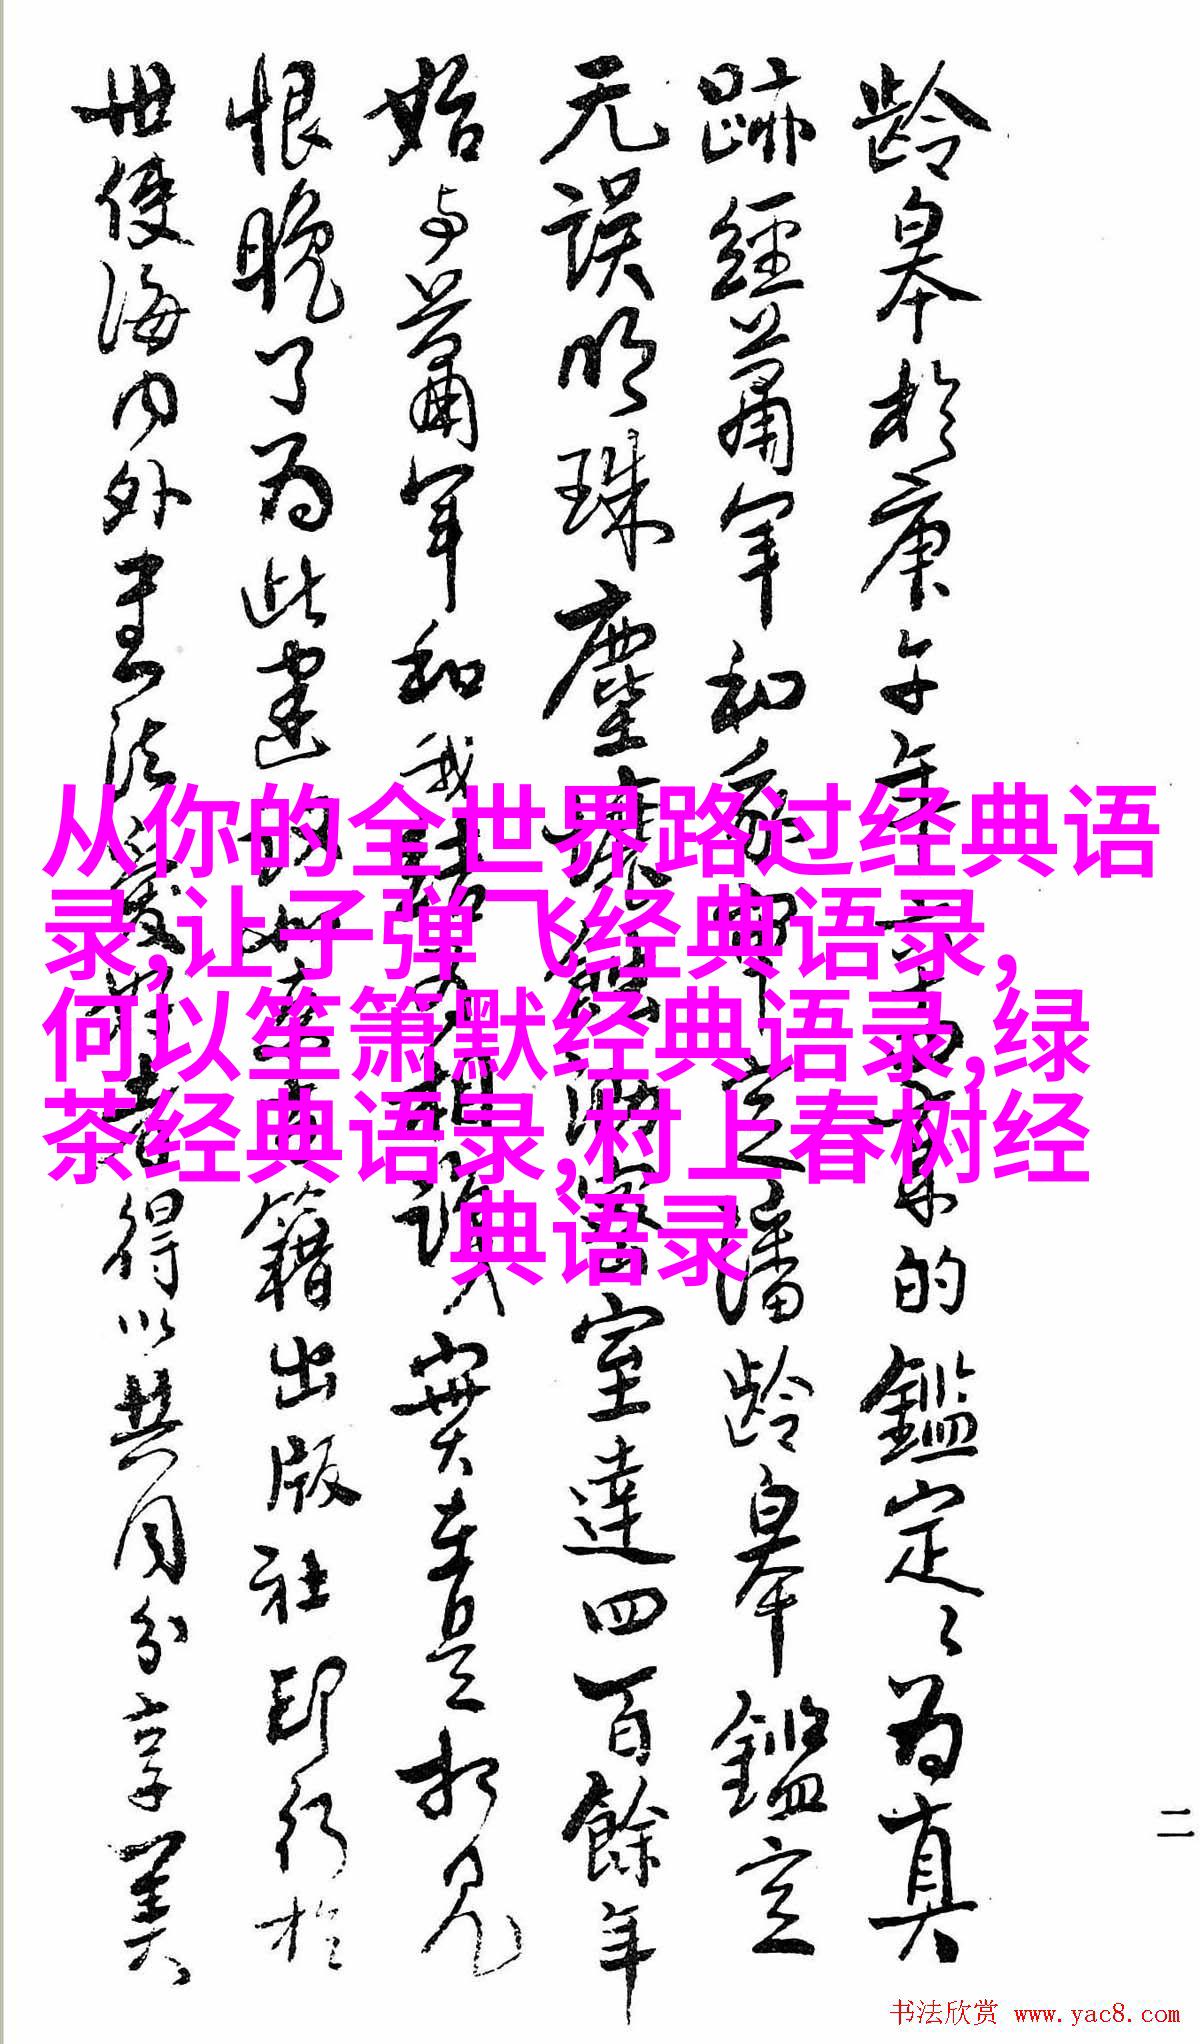 龄皋於庚午年 的鑑定之为真
跡經萧军和 定潘龄皋鑑定
无误明珠塵 室達四百餘年
始与萧军和我 相識實在是相見
恨晚了为此建 籍出版社印行於
世使海内外书法爱好者得以共同分享美
从你的全世界路过经典语
录,让子弹飞经典语录,
何以笙箫默经典语录,绿
茶经典语录,村上春树经
典语录
二
书法欣赏 www.yac8.com